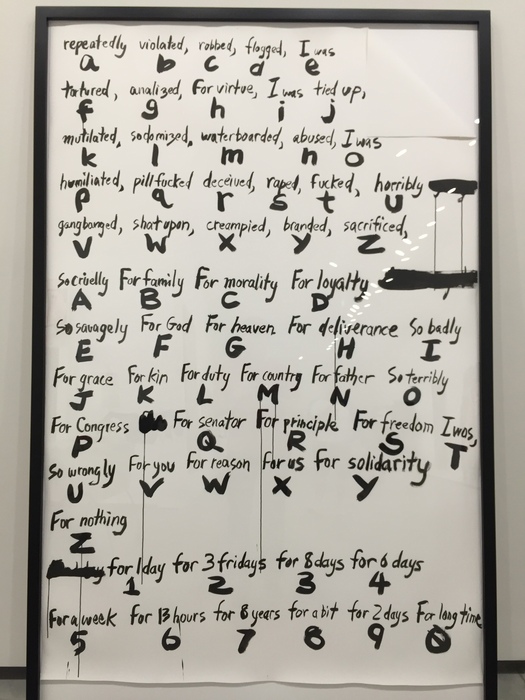 repeatedly violated, robbed, flogged, I was
a b c d e
tortured, analized, For virtue, I was tied up,
f g h i j
mutilated, sodomized, waterboarded, abused, I was
k l m n o
humiliated, pillfucked deceived, raped, fucked, horribly
p q r s t u
gangbanged, shat upon, creampied, branded, sacrificed,
v w x y z
So cruelly For family For morality For loyalty
A B C D
So savagely For God For heaven For deliverance So badly
E F G H I
For grace For kin For duty For country For father So terribly
J K L M N O
For Congress For senator For principle For freedom I was,
P Q R S T
So wrongly For you For reason For us for solidarity
U V W X Y
For nothing
Z
for 1 day for 3 fridays for 8 days for 6 days
1 2 3 4
For a week for 13 hours for 8 years for a bit for 2 days For long time
5 6 7 8 9 0